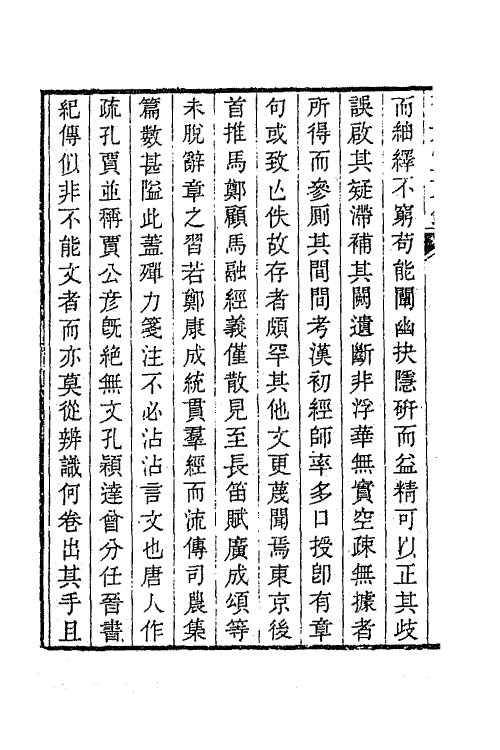 而紬繹不窮苟能闡幽抉隱硏而益精可以正其歧
誤啟其疑滯補其闕遺斷非浮華無實空疎無據者
所得而參厠其間間考漢初經師率多口授卽有章
句或致亾佚故存者頗罕其他文更蔑聞焉東京後
首推馬鄭顧馬融經義僅散見至長笛賦廣成頌等
未脫辭章之習若鄭康成統貫羣經而流傳司農集
篇數甚隘此蓋殫力箋注不必沾沾言文也唐人作
疏孔賈並稱賈公彦旣絶無文孔穎達曾分任晉書
紀傳似非不能文者而亦莫從辨識何卷出其手且